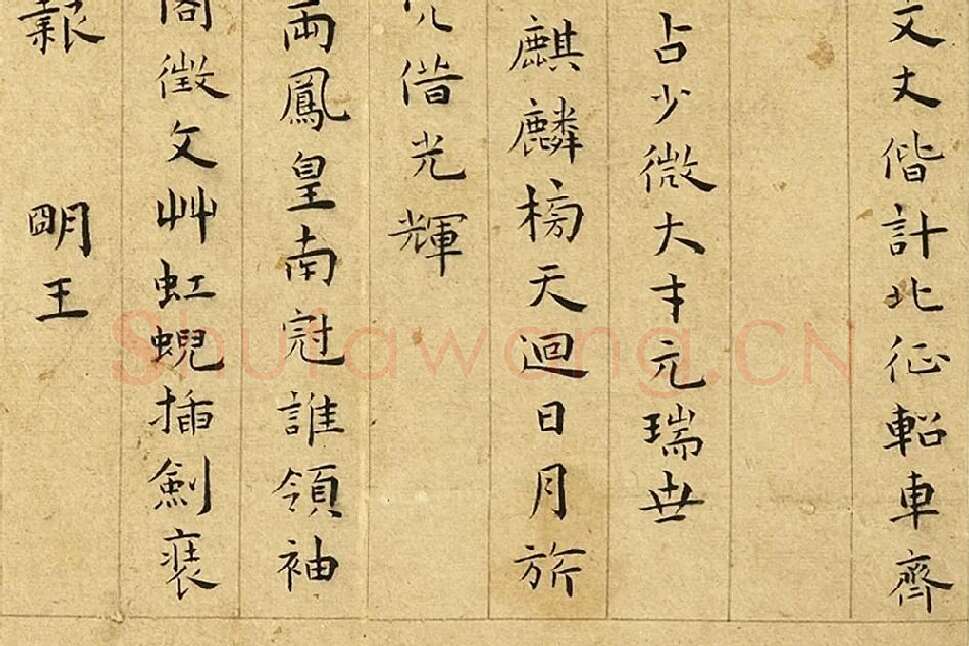 文丈偕計北征軺車齊
占少微大才元瑞世
麒麟榜天迴日月旂
偕光輝
兩鳳皇南冠誰領袖
閣徵文艸虹蜺插劍裘
報 明王
Shufawang.CN